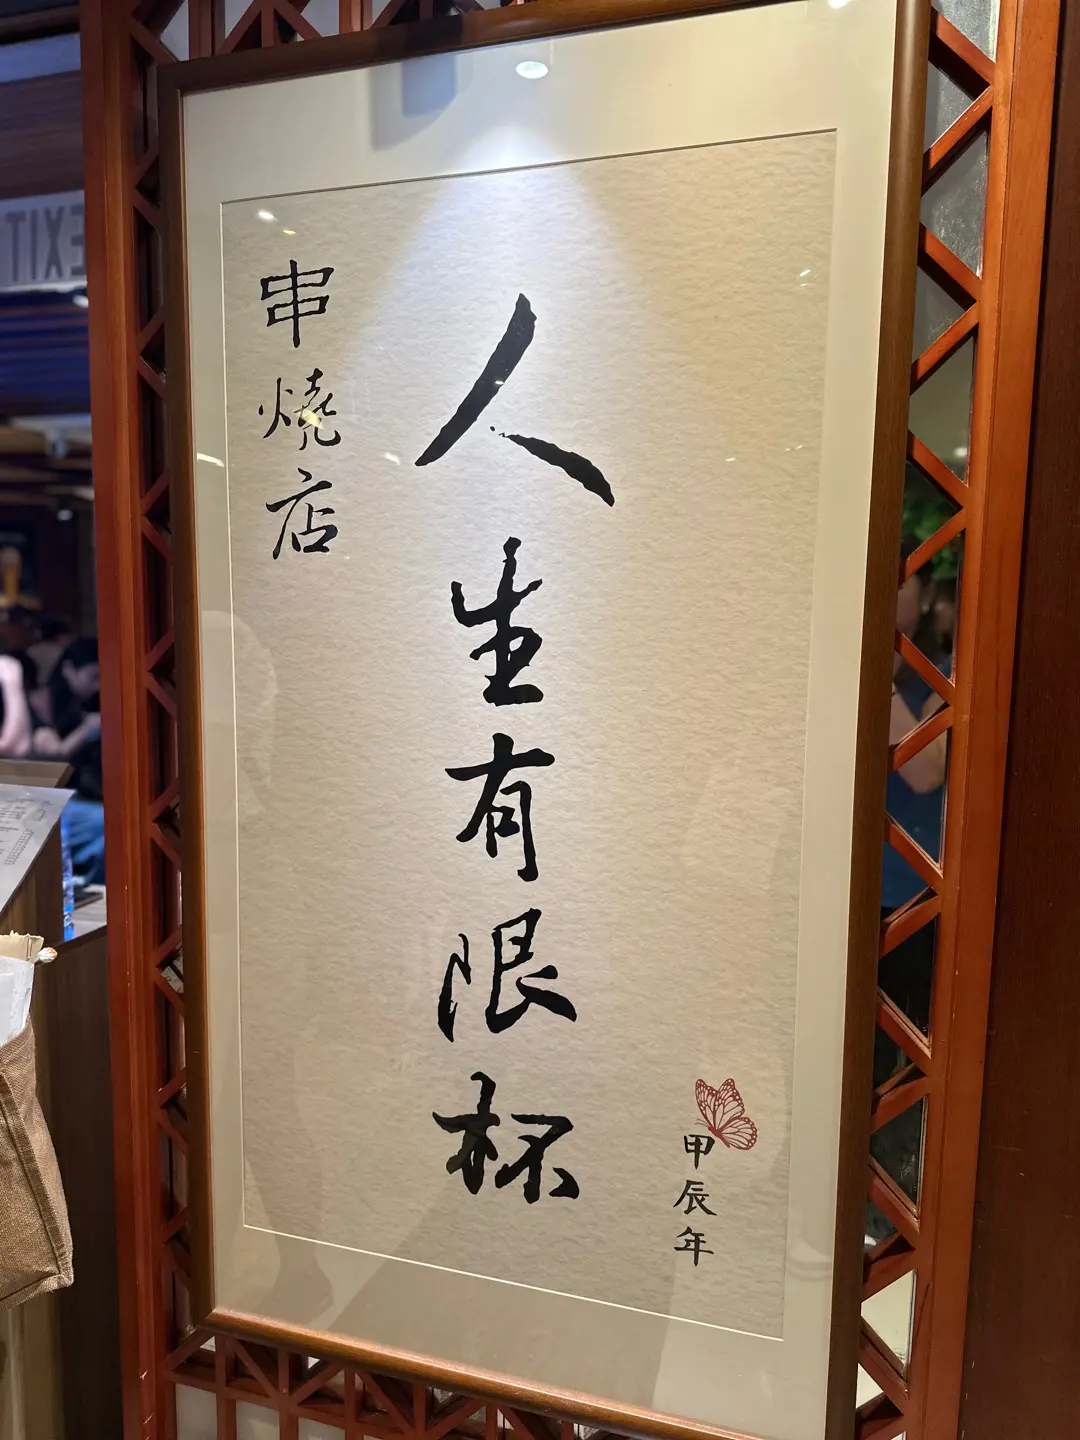 人生有限杯
串燒店
甲辰年
EXIT